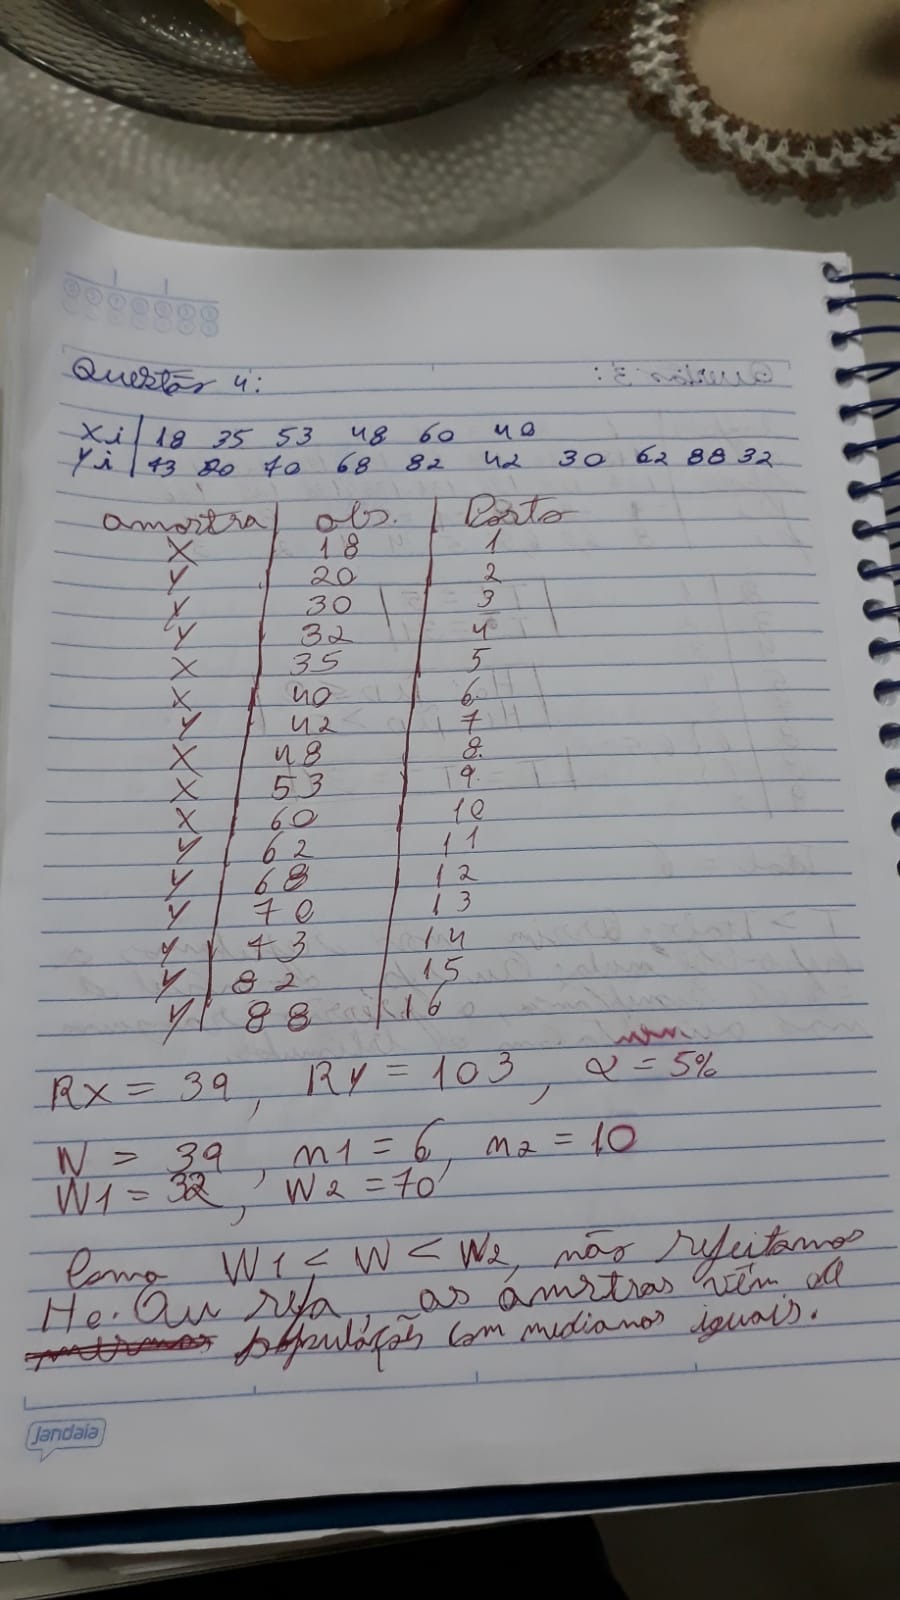 Questão 4:
Xi | 18 35 53 48 60 40
Yi | 73 20 70 68 82 42 30 62 88 32
amostra | obs. | Posto
X 18 1
Y 20 2
Y 30 3
Y 32 4
X 35 5
X 40 6
Y 42 7
X 48 8
X 53 9
X 60 10
Y 62 11
Y 68 12
Y 70 13
Y 73 14
Y 82 15
Y 88 16
Rx = 39, Ry = 103, α = 5%
W = 39, n1 = 6, n2 = 10
W1 = 32, W2 = 70
Como W1 < W < W2, não rejeitamos
Ho. Ou seja, as amostras vêm de
populações com medianas iguais.
Jandaia